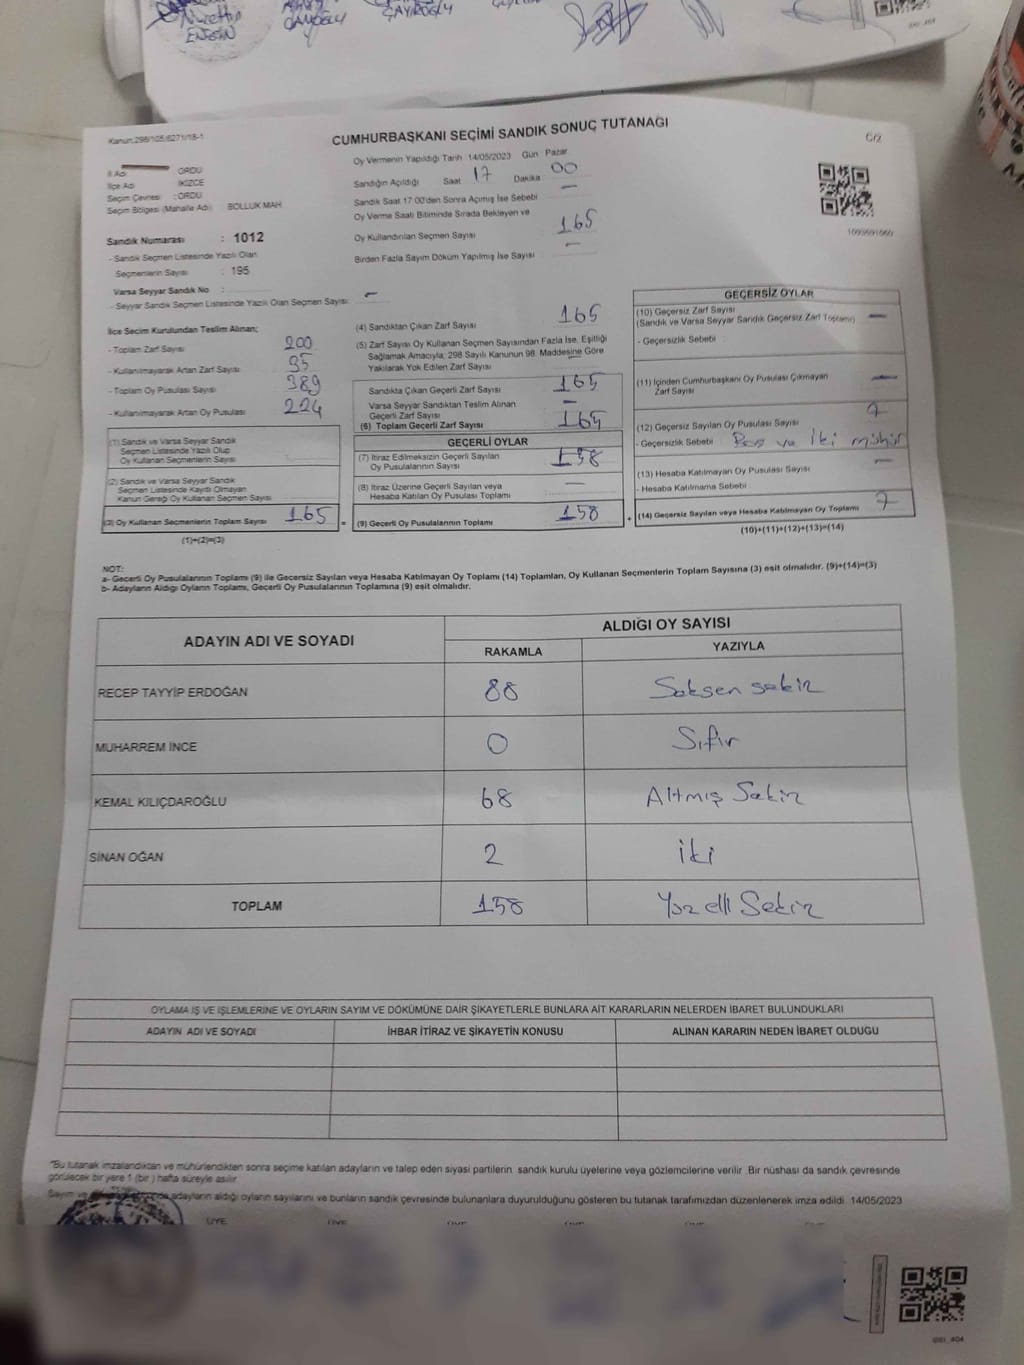 Nurettin
ENGİN
ÇAYIROĞLU
Kanun:298/105,6271/18-1
CUMHURBAŞKANI SEÇİMİ SANDIK SONUÇ TUTANAĞI
C/2
Oy Vermenin Yapıldığı Tarih 14/05/2023 Gün Pazar
İl Adı ORDU
İlçe Adı İKİZCE
Seçim Çevresi : ORDU
Seçim Bölgesi (Mahalle Adı) BOLLUK MAH.
Sandığın Açıldığı Saat 17 Dakika 00
Sandık Saat 17:00'den Sonra Açmış İse Sebebi —
Oy Verme Saati Bitiminde Sırada Bekleyen ve
Oy Kullandırılan Seçmen Sayısı 165
Birden Fazla Sayım Döküm Yapılmış İse Sayısı —
Sandık Numarası : 1012
- Sandık Seçmen Listesinde Yazılı Olan
Seçmenlerin Sayısı : 195
Varsa Seyyar Sandık No :
- Seyyar Sandık Seçmen Listesinde Yazılı Olan Seçmen Sayısı: —
İlçe Seçim Kurulundan Teslim Alınan;
- Toplam Zarf Sayısı 200
- Kullanılmayarak Artan Zarf Sayısı 35
- Toplam Oy Pusulası Sayısı 389
- Kullanılmayarak Artan Oy Pusulası 224
(1) Sandık ve Varsa Seyyar Sandık
Seçmen Listesinde Yazılı Olup
Oy Kullanan Seçmenlerin Sayısı
(2) Sandık ve Varsa Seyyar Sandık
Seçmen Listesinde Kayıtlı Olmayan
Kanun Gereği Oy Kullanan Seçmen Sayısı
(3) Oy Kullanan Seçmenlerin Toplam Sayısı 165 =
(1)+(2)=(3)
(4) Sandıktan Çıkan Zarf Sayısı 165
(5) Zarf Sayısı Oy Kullanan Seçmen Sayısından Fazla İse, Eşitliği
Sağlamak Amacıyla; 298 Sayılı Kanunun 98. Maddesine Göre
Yakılarak Yok Edilen Zarf Sayısı —
Sandıkta Çıkan Geçerli Zarf Sayısı 165
Varsa Seyyar Sandıktan Teslim Alınan
Geçerli Zarf Sayısı —
(6) Toplam Geçerli Zarf Sayısı 165
GEÇERLİ OYLAR
(7) İtiraz Edilmeksizin Geçerli Sayılan
Oy Pusulalarının Sayısı 158
(8) İtiraz Üzerine Geçerli Sayılan veya
Hesaba Katılan Oy Pusulası Toplamı —
(9) Geçerli Oy Pusulalarının Toplamı 158 +
GEÇERSİZ OYLAR
(10) Geçersiz Zarf Sayısı
(Sandık ve Varsa Seyyar Sandık Geçersiz Zarf Toplamı) —
- Geçersizlik Sebebi :
(11) İçinden Cumhurbaşkanı Oy Pusulası Çıkmayan
Zarf Sayısı —
(12) Geçersiz Sayılan Oy Pusulası Sayısı 7
- Geçersizlik Sebebi Boş ve İki mühür
(13) Hesaba Katılmayan Oy Pusulası Sayısı —
- Hesaba Katılmama Sebebi
(14) Geçersiz Sayılan veya Hesaba Katılmayan Oy Toplamı 7
(10)+(11)+(12)+(13)=(14)
NOT:
a- Geçerli Oy Pusulalarının Toplamı (9) ile Geçersiz Sayılan veya Hesaba Katılmayan Oy Toplamı (14) Toplamları, Oy Kullanan Seçmenlerin Toplam Sayısına (3) eşit olmalıdır. (9)+(14)=(3)
b- Adayların Aldığı Oyların Toplamı, Geçerli Oy Pusulalarının Toplamına (9) eşit olmalıdır.
ADAYIN ADI VE SOYADI
ALDIĞI OY SAYISI
RAKAMLA YAZIYLA
RECEP TAYYİP ERDOĞAN 88 Seksen sekiz
MUHARREM İNCE 0 Sıfır
KEMAL KILIÇDAROĞLU 68 Altmış Sekiz
SİNAN OĞAN 2 iki
TOPLAM 158 Yüz elli Sekiz
OYLAMA İŞ VE İŞLEMLERİNE VE OYLARIN SAYIM VE DÖKÜMÜNE DAİR ŞİKAYETLERLE BUNLARA AİT KARARLARIN NELERDEN İBARET BULUNDUKLARI
ADAYIN ADI VE SOYADI İHBAR İTİRAZ VE ŞİKAYETİN KONUSU ALINAN KARARIN NEDEN İBARET OLDUĞU
"Bu tutanak imzalandıktan ve mühürlendikten sonra seçime katılan adayların ve talep eden siyasi partilerin sandık kurulu üyelerine veya gözlemcilerine verilir. Bir nüshası da sandık çevresinde
görülecek bir yere 1 (bir) hafta süreyle asılır.
Sayım ve adayların aldığı oyların sayılarını ve bunların sandık çevresinde bulunanlara duyurulduğunu gösteren bu tutanak tarafımızdan düzenlenerek imza edildi. 14/05/2023
ÜYE ÜYE ÜYE ÜYE ÜYE ÜYE